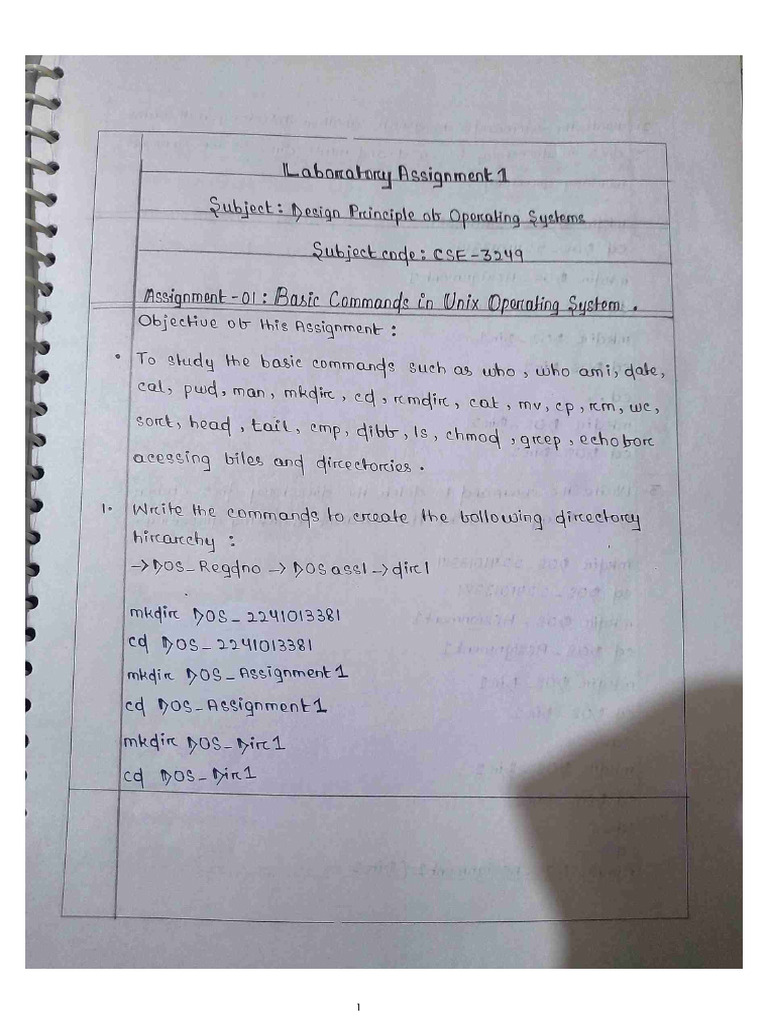 Laboratory Assignment 1
Subject: Design Principle of Operating Systems
Subject code: CSE-3249
Assignment-01: Basic Commands in Unix Operating System.
Objective of this Assignment:
• To study the basic commands such as who, who ami, date,
cal, pwd, man, mkdir, cd, rmdir, cat, mv, cp, rm, wc,
sort, head, tail, cmp, diff, ls, chmod, grep, echo for
acessing files and directories.
1. Write the commands to create the following directory
hirarchy:
→DOS_Regdno → DOS ass1 → dir1
mkdir DOS_2241013381
cd DOS_2241013381
mkdir DOS_Assignment1
cd DOS_Assignment1
mkdir DOS_Dir1
cd DOS_Dir1
1